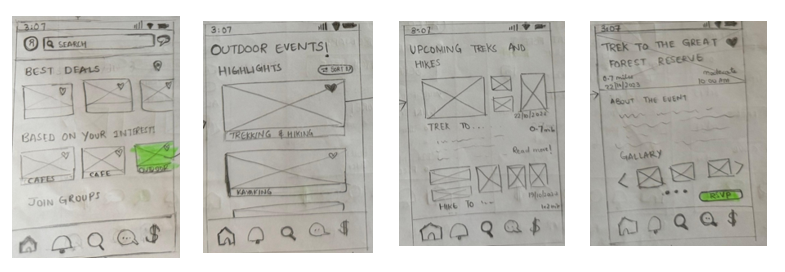 3:07
R SEARCH
BEST DEALS
BASED ON YOUR INTEREST!
CAFES
CAFE
JOIN GROUPS
$
3:07
OUTDOOR EVENTS!
HIGHLIGHTS
TREKKING & HIKING
KAYAKING
$
3:07
UPCOMING TREKS AND
HIKES
TREK TO...
0.7mile
Read more!
HIKE TO ...
$
3:07
TREK TO THE GREAT
FOREST RESERVE
0.7 miles
moderate
22/10/2023
10:00 AM
ABOUT THE EVENT
GALLARY
RSVP
$